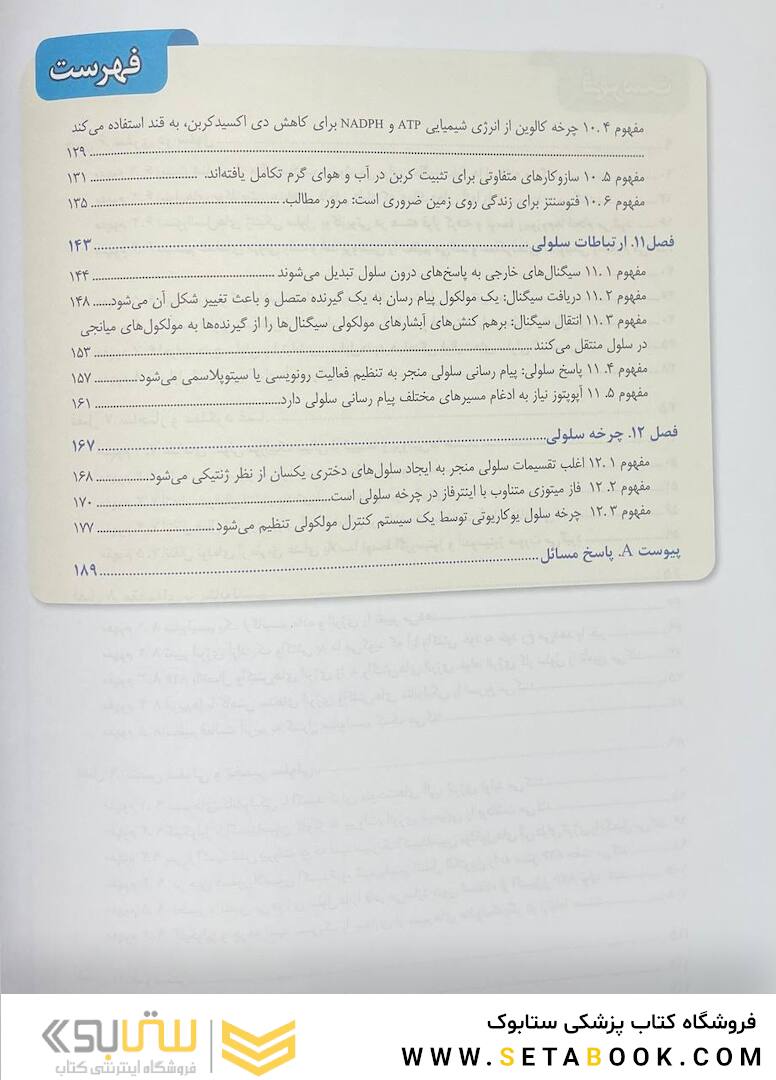 فهرست
مفهوم ۱۰.۴ چرخه کالوین از انرژی شیمیایی ATP و NADPH برای کاهش دی اکسیدکربن، به قند استفاده می‌کند
۱۲۹
مفهوم ۱۰.۵ سازوکارهای متفاوتی برای تثبیت کربن در آب و هوای گرم تکامل یافته‌اند. ۱۳۱
مفهوم ۱۰.۶ فتوسنتز برای زندگی روی زمین ضروری است: مرور مطالب. ۱۳۵
فصل۱۱. ارتباطات سلولی ۱۴۳
مفهوم ۱۱.۱ سیگنال‌های خارجی به پاسخ‌های درون سلول تبدیل می‌شوند ۱۴۴
مفهوم ۱۱.۲ دریافت سیگنال: یک مولکول پیام رسان به یک گیرنده متصل و باعث تغییر شکل آن می‌شود ۱۴۸
مفهوم ۱۱.۳ انتقال سیگنال: برهم کنش‌های آبشارهای مولکولی سیگنال‌ها را از گیرنده‌ها به مولکول‌های میانجی
در سلول منتقل می‌کنند ۱۵۳
مفهوم ۱۱.۴ پاسخ سلولی: پیام رسانی سلولی منجر به تنظیم فعالیت رونویسی یا سیتوپلاسمی می‌شود ۱۵۷
مفهوم ۱۱.۵ آپوپتوز نیاز به ادغام مسیرهای مختلف پیام رسانی سلولی دارد ۱۶۱
فصل ۱۲. چرخه سلولی ۱۶۷
مفهوم ۱۲.۱ اغلب تقسیمات سلولی منجر به ایجاد سلول‌های دختری یکسان از نظر ژنتیکی می‌شود ۱۶۸
مفهوم ۱۲.۲ فاز میتوزی متناوب با اینترفاز در چرخه سلولی است ۱۷۰
مفهوم ۱۲.۳ چرخه سلول یوکاریوتی توسط یک سیستم کنترل مولکولی تنظیم می‌شود ۱۷۷
پیوست A. پاسخ مسائل ۱۸۹
فروشگاه کتاب پزشکی ستابوک
WWW.SETABOOK.COM
ستابوک
فروشگاه اینترنتی کتاب